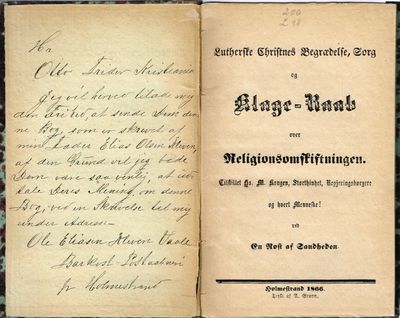 Hr.
Otto Frider Kristiansen
Jeg vil herved tilade mig
den Frihed, at sende Dem den
ne Bog, som er skrevet af
min Fader Elias Olsen Kleven,
af den Grund vil jeg bede
Dem være saa venlig, at ud
tale Deres Mening om denne
Bog, ved en Skrivelse til mig
under Adresse:
Ole Eliasen Kleven Vaale
Barkost Postaabneri
pr Holmestrand
200
Lutherske Christnes Begrædelse, Sorg
og
Klage-Raab
over
Religionsomskiftningen.
Tilstillet Hs. M. Kongen, Storthinget, Regjeringsborgere
og hvert Menneske!
ved
En Røst af Sandheden.
Holmestrand 1866.
Trykt af